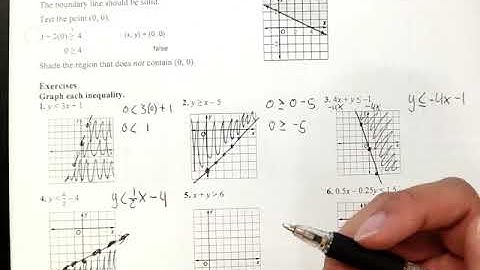 The boundary line should be solid.
Test the point (0, 0).
0 ≥ 4 false
Shade the region that does not contain (0, 0).
Exercises
Graph each inequality.
1. y < 3x - 1
0 < 3(0) + 1
0 < 1
2. y ≥ x - 5
0 ≥ 0 - 5
0 ≥ -5
3. 4x + y ≤ -1
-4x -4x
y ≤ -4x - 1
y < ½x - 4
5. x + y > 6
6. 0.5x - 0.25y < 1.5